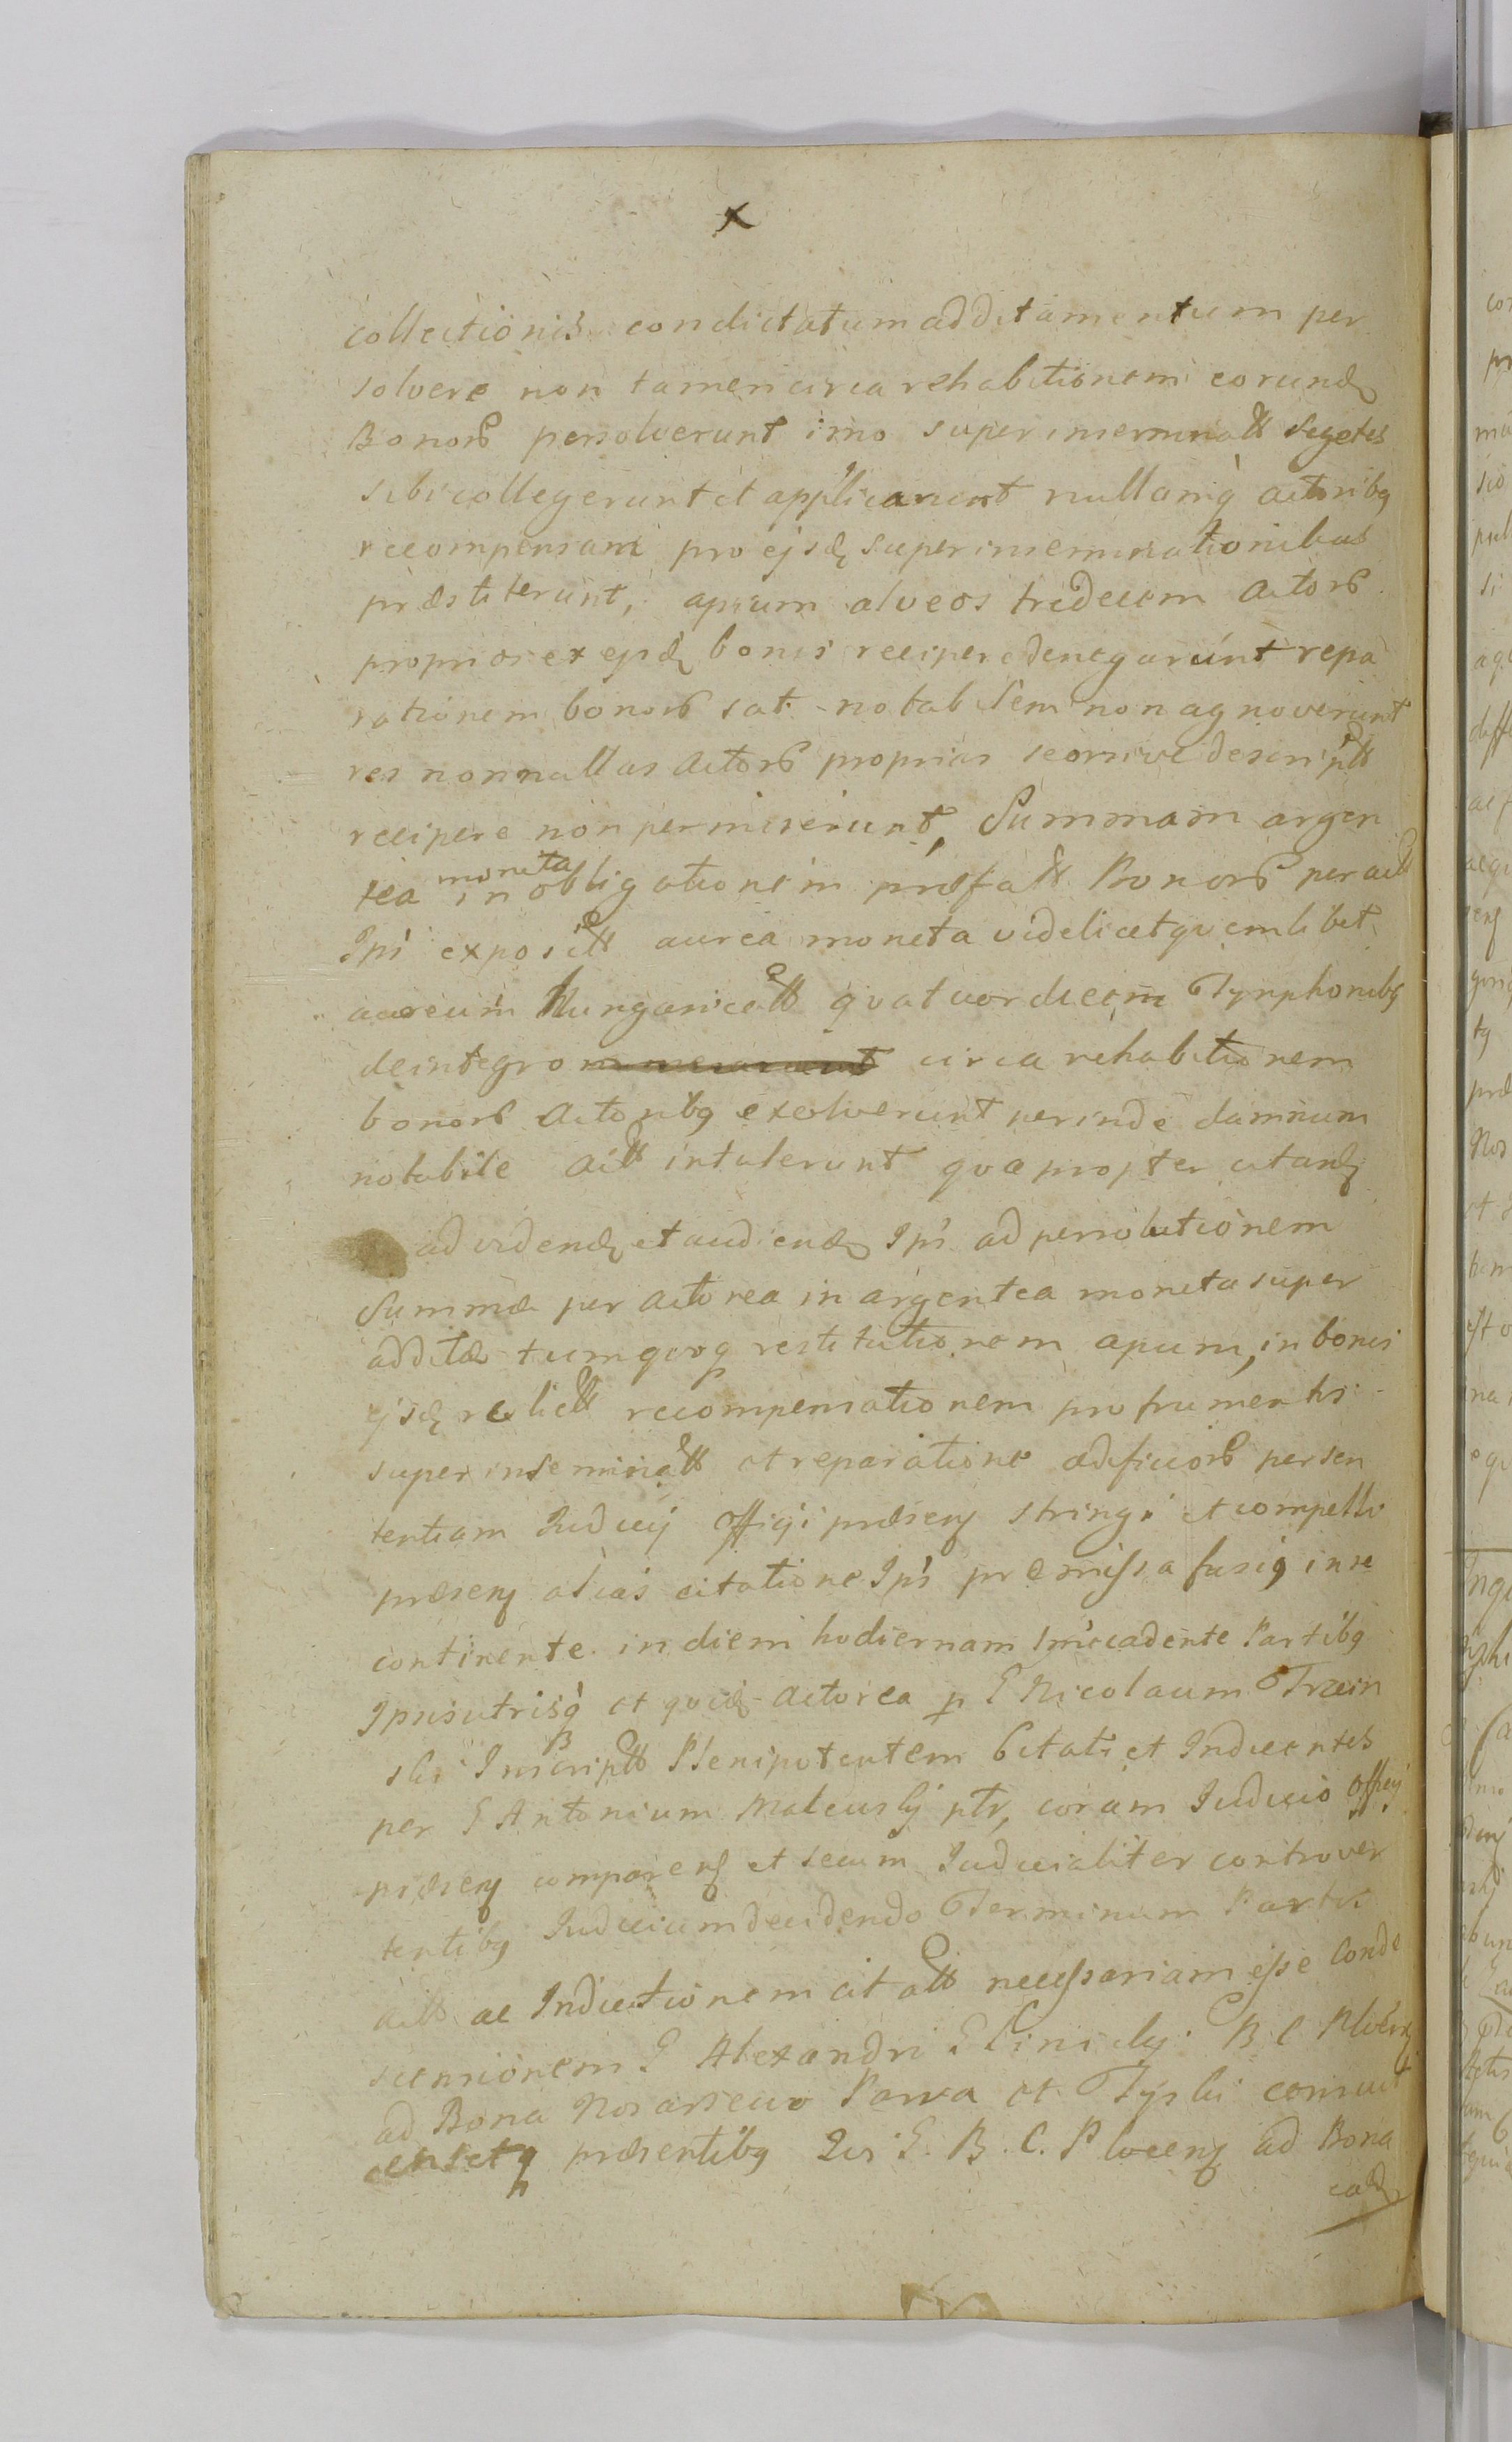 x
collectionis condictatum additamentum per
solvere non tamen circa rehabitionem eorund
Bonor persolverunt imo super inseminatt segetes
sibi collegerunt et applicarunt nullamq actoribq
recompensam pro ejsd superinseminationibus
præstiterunt, apium alveos tredecem Actor
proprios ex ejsd bonis recipere denegarunt repa
rationem bonor sat notabilem non agnoverunt
res nonnullas Actor proprias seorsive descriptt
recipere non permiserunt, Summam argen
tea moneta in obligationem præfatt Bonor per actt
Ipsi exposittt aurea moneta videlicet quemlibet
aureum Hungaricatt quatuordecem Tynphonibq
deintegro circa rehabitionem
bonor Actoribq exolverunt perinde damnum
notabile actt intulerunt quapropter citand
ad vidend et audiend Ipsi ad persolutionem
Summæ per Actorea in argentea moneta super
additæ tum quoq restitutionem apum, in bonis
ejsd relictt recompensationem pro frumentis
super inseminatt et reparatione ædificior per sen
tentiam Judicij Officij præsens stringi et compelli
præsens alias citatione Ipsi præmissa fusiq in se
continente in diem hodiernam incadente Partibq
Ipsis utrisq et quid Actorea p G Nicolaum Trzcin
ski Inscriptt Plenipotentem Citati et Inducentes
per G Antonium Maleuskj ptr, coram Judicio Officij
præsens comparens et secum Judicialiter controver
tentibq Judicium decidendo Terminum Partis
actt ac Inductionem citatt necessariam esse Conde
scensionem G Alexandri Glinickj B C Plocens
ad Bona Parva et Tyski consuet
censetq præsentibq Qui G. B. C. Plocens ad Bona
ead